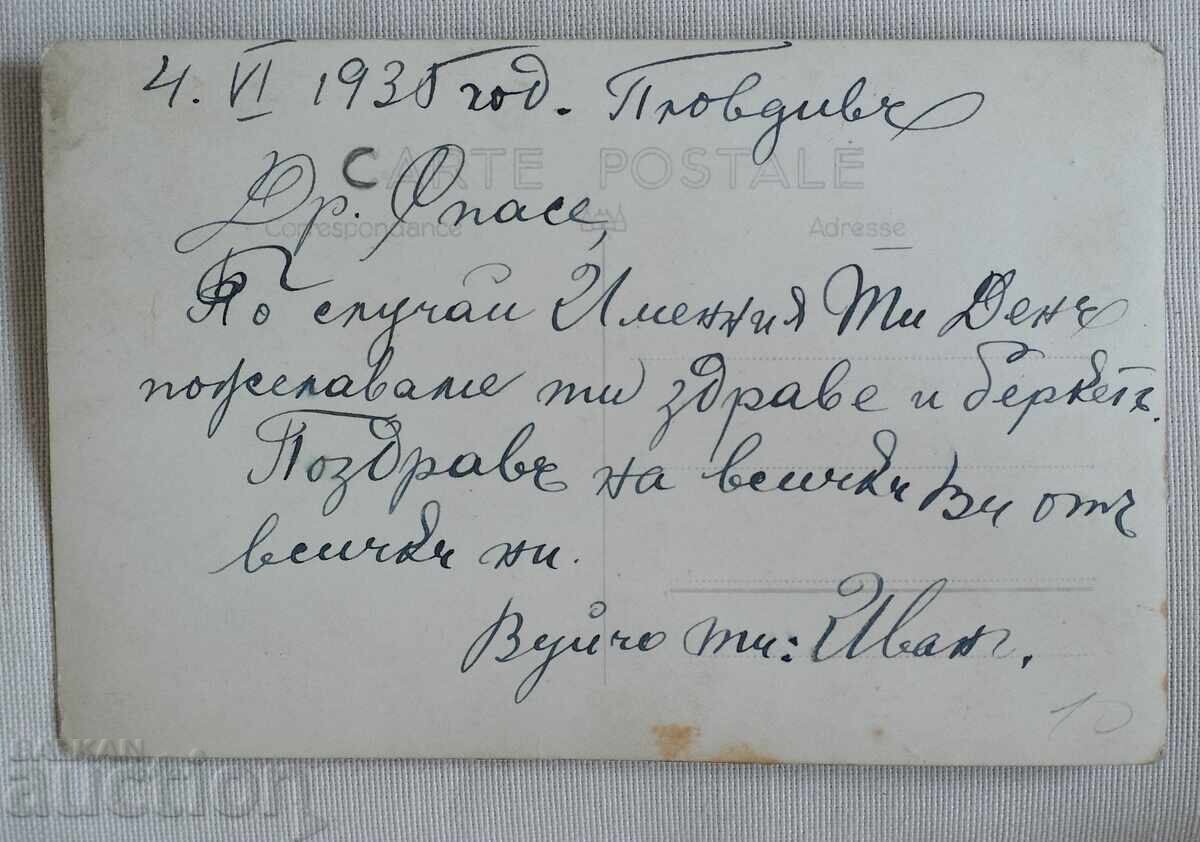 4. VI 1935 год. Пловдивъ
CARTE POSTALE
С
Др. Спасе,
Correspondance Adresse
По случай Именния Ти Денъ
пожелаваме ти здраве и берекетъ.
Поздравъ на всички Ви отъ
всички ни.
Вуйчо ти: Иванъ.
10
BALKAN
auction